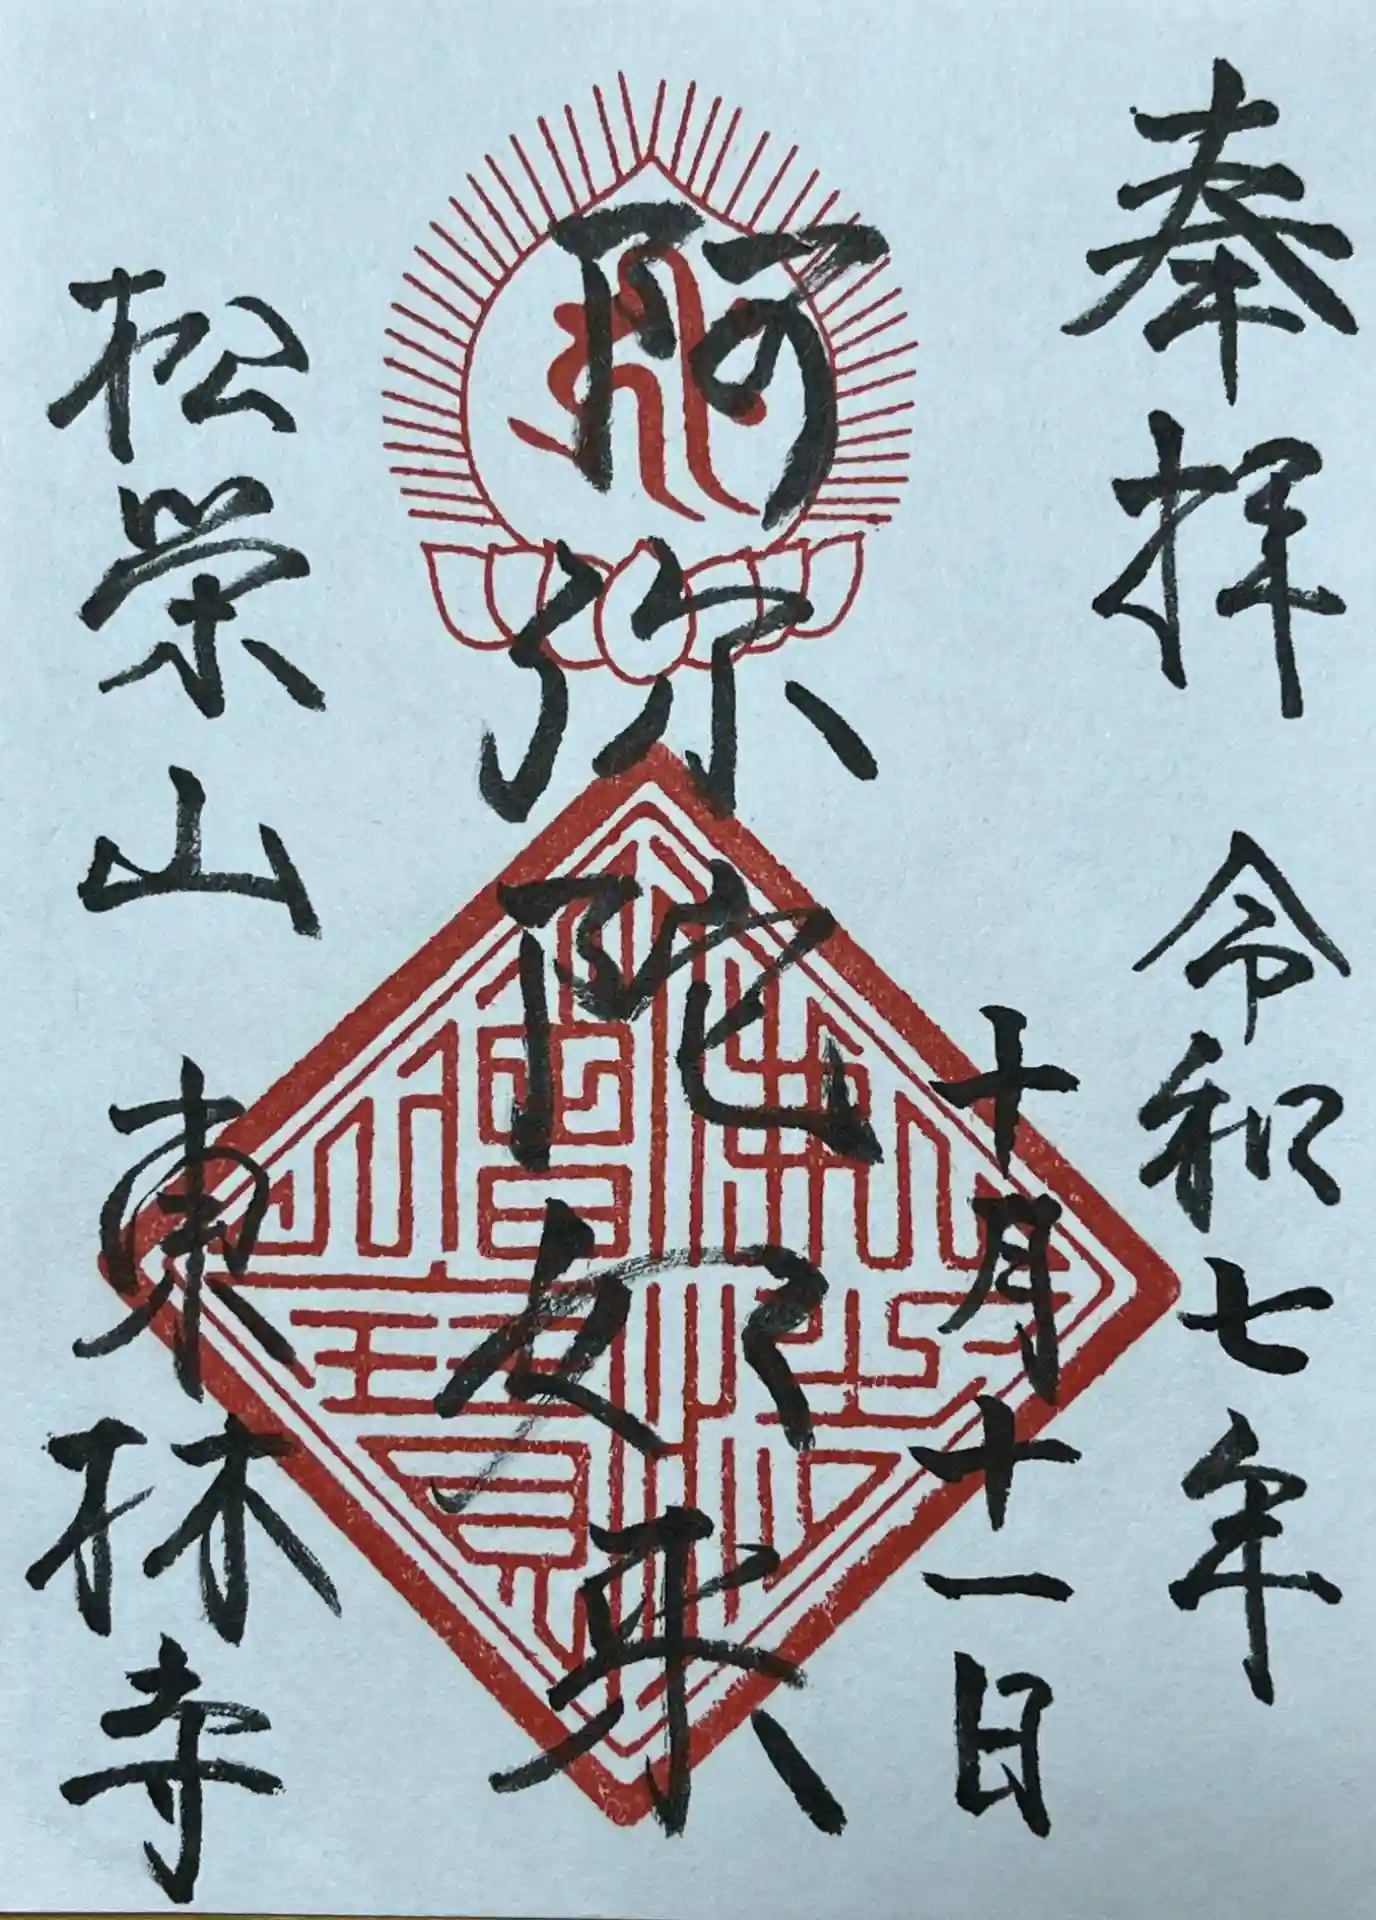 奉拝 令和七年
十月十一日
阿弥陀如来
松栄山 東林寺
佛法僧寳